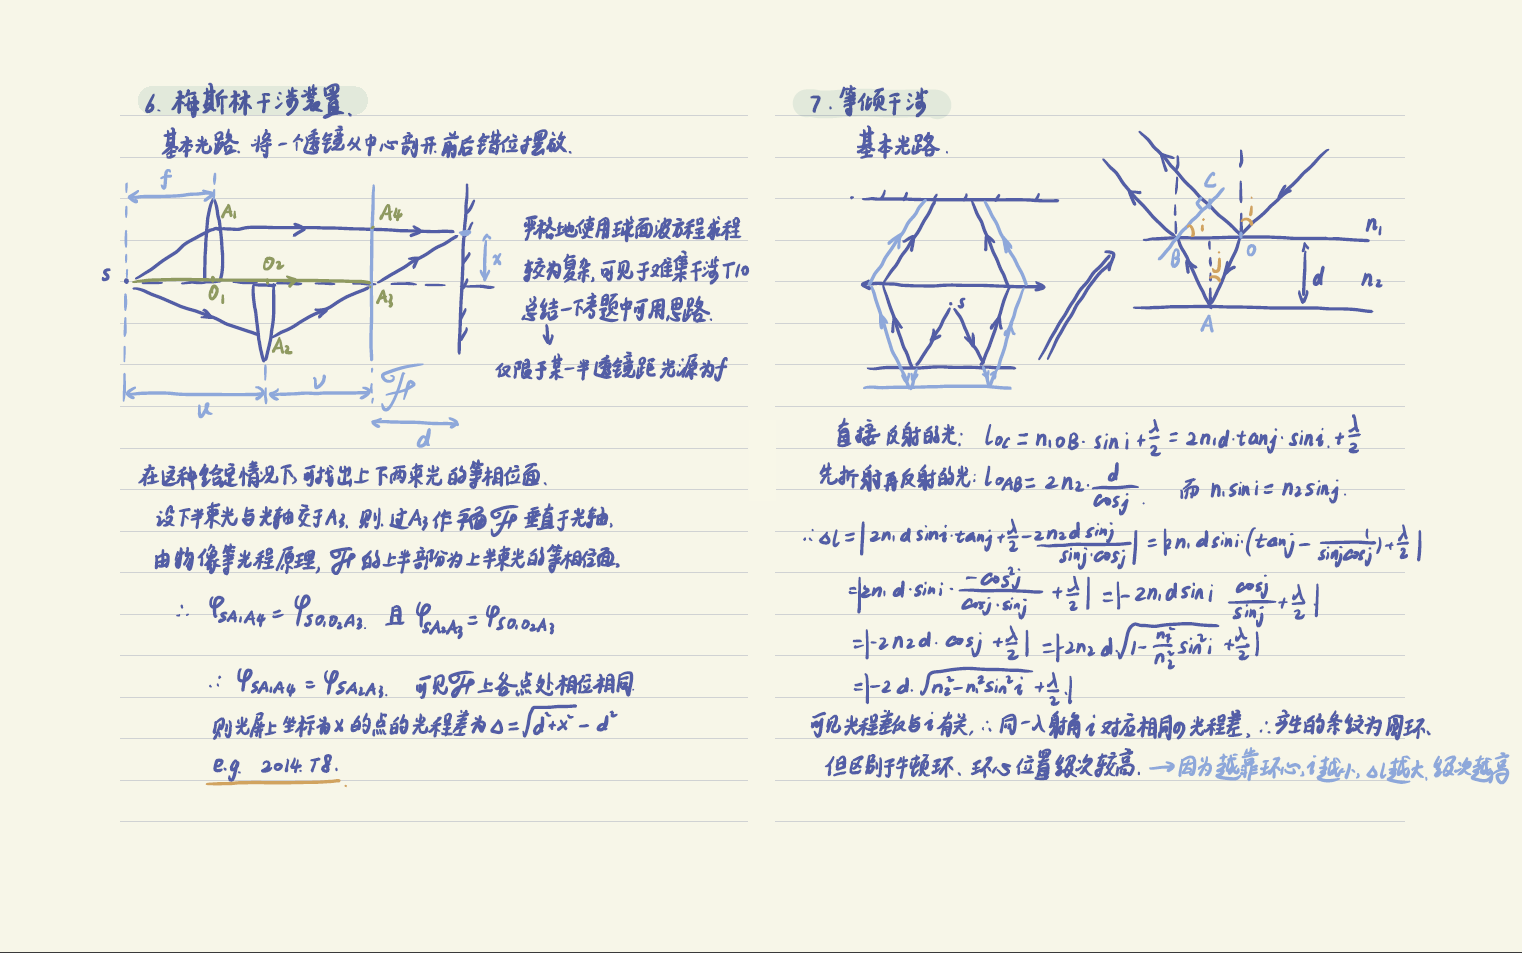 6. 梅斯林干涉装置.
基本光路. 将一个透镜从中心剖开前后错位摆放.
f
A₁
A₄
S
O₂
O₁
A₃
A₂
x
u
v
𝓕
d
严格地使用球面波方程求程
较为复杂,可见于难集干涉T10
总结一下考题中可用思路.
↓
仅限于某一半透镜距光源为f
在这种给定情况下,可找出上下两束光的等相位面.
设下半束光与光轴交于A₃. 则.过A₃作平面𝓕垂直于光轴.
由物像等光程原理, 𝓕的上半部分为上半束光的等相位面.
∴ φSA₁A₄ = φSO₁O₂A₃. 且 φSA₂A₃ = φSO₁O₂A₃
∴ φSA₁A₄ = φSA₂A₃. 可见𝓕上各点处相位相同.
则光屏上坐标为x的点的光程差为Δ=√(d²+x²) - d²
e.g. 2014.T8.
7. 等倾干涉
基本光路.
s
C
i
i
n₁
B
O
j
d
n₂
A
直接反射的光: lOC = n₁OB·sini + λ/2 = 2n₁d·tanj·sini + λ/2
先折射再反射的光: lOAB = 2n₂·d/cosj. 而 n₁sini = n₂sinj.
∴Δl = |2n₁dsini·tanj + λ/2 - 2n₂dsinj/(sinj·cosj)| = |2n₁dsini·(tanj - 1/(sinjcosj)) + λ/2|
= |2n₁d·sini·(-cos²j)/(cosj·sinj) + λ/2| = |-2n₁dsini cosj/sinj + λ/2|
= |-2n₂d·cosj + λ/2| = |-2n₂d√(1 - n₁²/n₂² sin²i) + λ/2|
= |-2d·√(n₂² - n₁²sin²i) + λ/2|
可见光程差仅与i有关, ∴同一入射角i对应相同の光程差, ∴产生的条纹为圆环.
但区别于牛顿环、环心位置级次较高. →因为越靠环心,i越小,Δl越大,级次越高